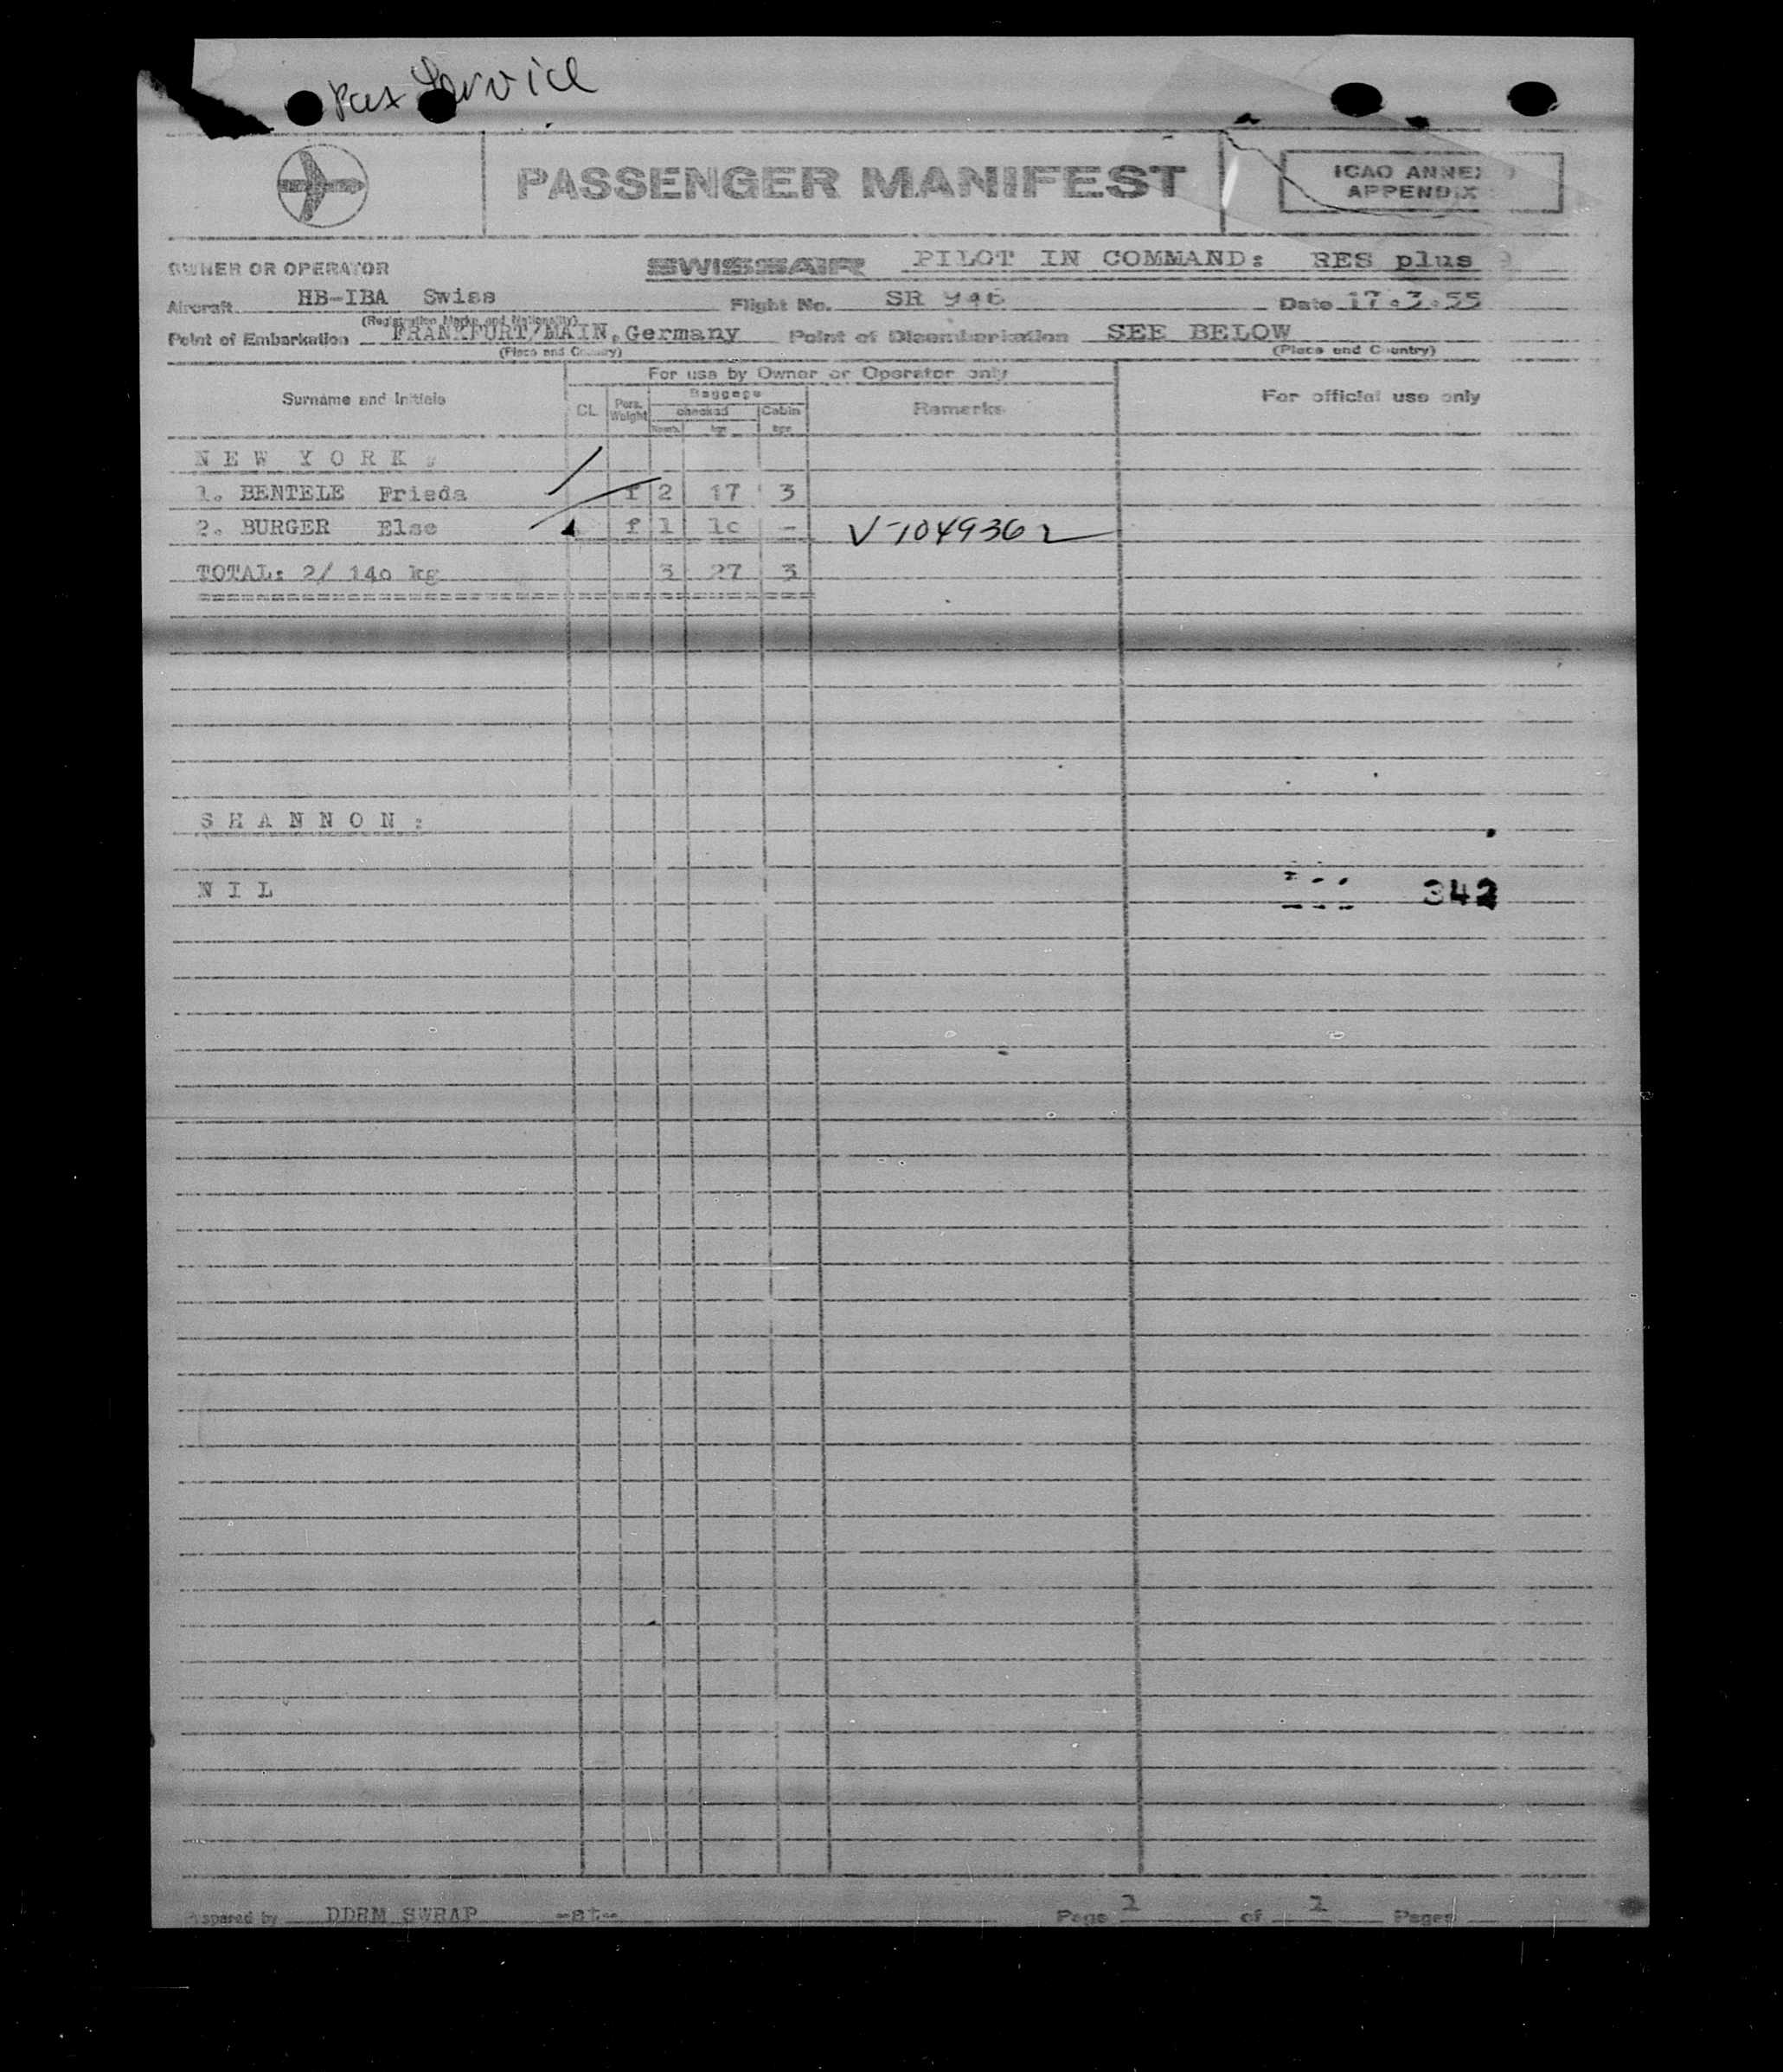 Pax Service
PASSENGER MANIFEST
ICAO ANNEX 9
APPENDIX
OWNER OR OPERATOR SWISSAIR PILOT IN COMMAND: RES plus 9
Aircraft HB-IBA Swiss Flight No. SR 946 Date 17.3.55
(Registration Marks and Nationality)
Point of Embarkation FRANKFURT/MAIN, Germany Point of Disembarkation SEE BELOW
(Place and Country) (Place and Country)
For use by Owner or Operator only
Surname and Initials CL Pers. Weight Baggage checked Cabin Remarks For official use only
Numb. kgr kgr
NEW YORK:
1. BENTELE Frieda f 2 17 3
2. BURGER Else f 1 1o - V-1049362
TOTAL: 2/ 14o kg 3 27 3
SHANNON:
NIL 342
Prepared by DDRM SWRAP -at- Page 1 of 1 Pages